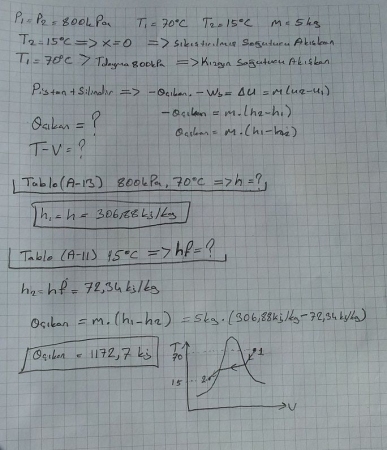 P₁ = P₂ = 800kPa T₁ = 70°C T₂ = 15°C m = 5kg
T₂ = 15°C => x=0 => Sıkıştırılmış Soğutucu Akışkan
T₁ = 70°C > Tdoyma 800kPa => Kızgın Soğutucu Akışkan
Piston + Silindir => -Qçıkan. - Wb = ΔU = m(u2-u1)
Qçıkan = ?
-Qçıkan = m.(h2-h1)
Qçıkan = m.(h1-h2)
T-V = ?
Tablo (A-13) 800kPa, 70°C => h = ?
h₁ = h = 306,88 kj/kg
Tablo (A-11) 15°C => hf = ?
h₂ = hf = 72,34 kj/kg
Qçıkan = m.(h1-h2) = 5kg.(306,88kj/kg - 72,34 kj/kg)
Qçıkan = 1172,7 kj
T
70
1
15
2
V